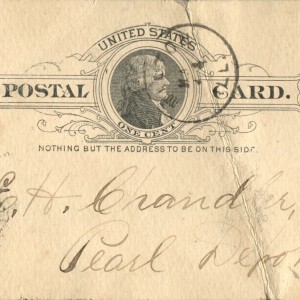 UNITED STATES
POSTAL CARD.
ONE CENT
NOTHING BUT THE ADDRESS TO BE ON THIS SIDE.
H. Chandler,
Pearl Depot